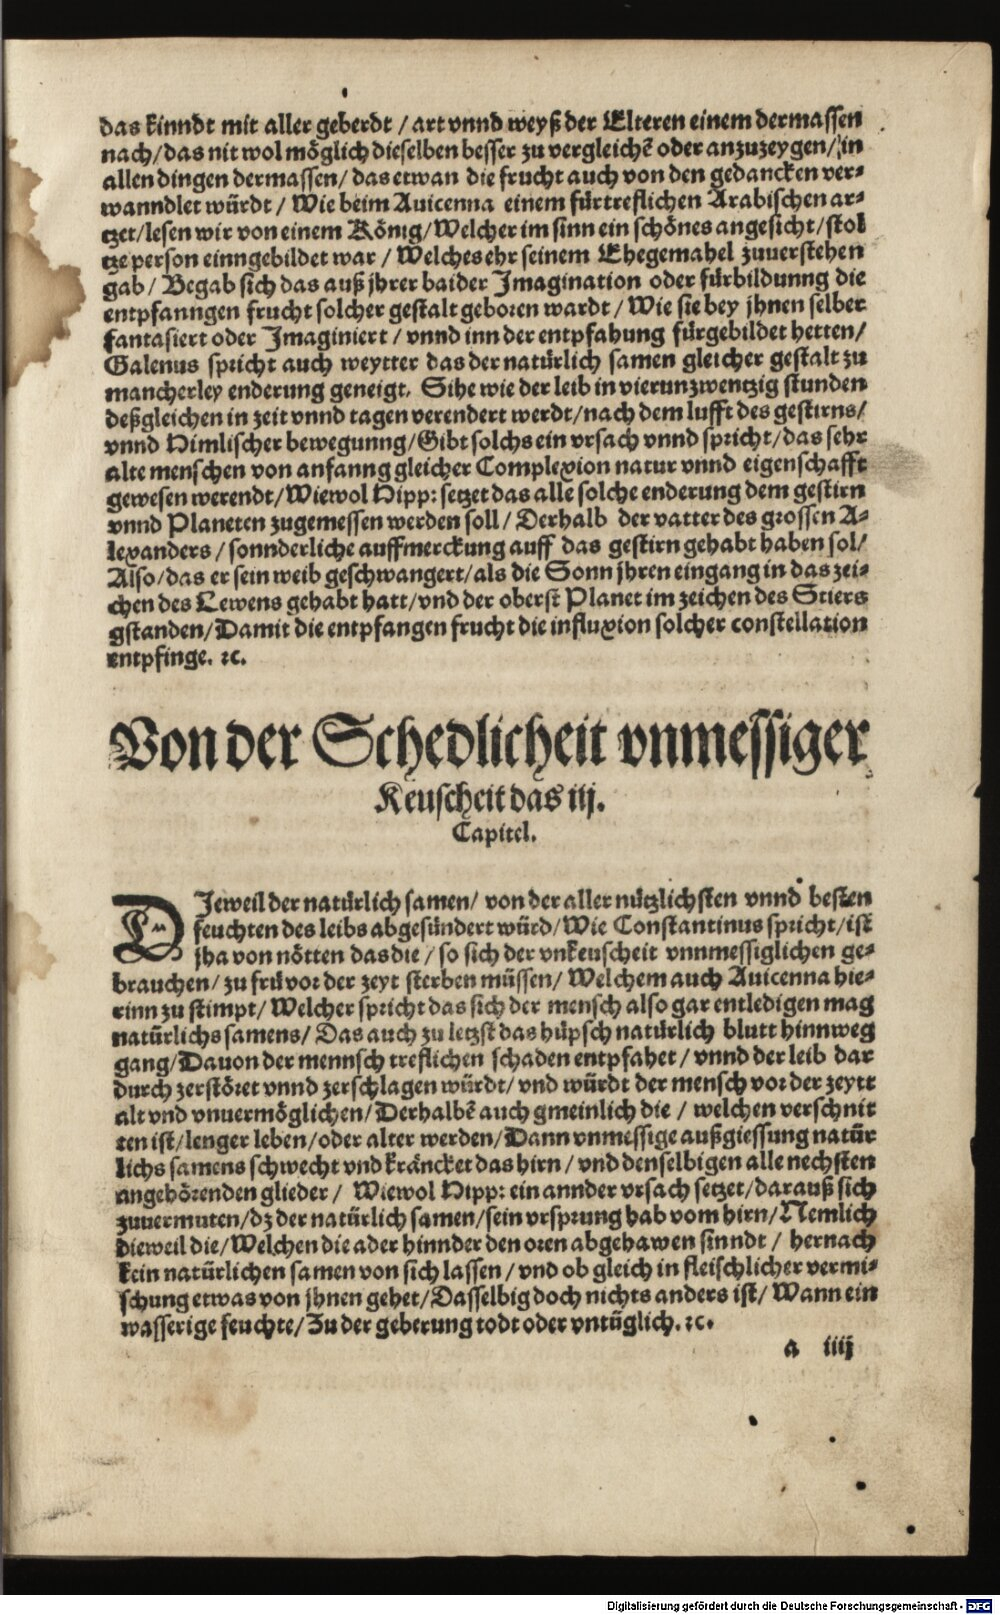 das kinndt mit aller geberdt / art vnnd weyß der Elteren einem dermassen
nach/das nit wol möglich dieselben besser zu vergleichẽ oder anzuzeygen/in
allen dingen dermassen/ das etwan die frucht auch von den gedancken ver⸗
wanndlet würdt / Wie beim Auicenna einem fürtreflichen Arabischen ar⸗
tzet/lesen wir von einem König/Welcher im sinn ein schönes angesicht/stol
tze person einngebildet war / Welches ehr seinem Ehegemahel zuuerstehen
gab/ Begab sich das auß jhrer baider Imagination oder fürbildunng die
entpfanngen frucht solcher gestalt geboren wardt / Wie sie bey jhnen selber
fantasiert oder Imaginiert / vnnd inn der entpfahung fürgebildet hetten/
Galenus spricht auch weytter das der natürlich samen gleicher gestalt zu
mancherley enderung geneigt. Sihe wie der leib in vierunzwentzig stunden
deßgleichen in zeit vnnd tagen verendert werdt/nach dem lufft des gestirns/
vnnd Himlischer bewegunng/Gibt solchs ein vrsach vnnd spricht/das sehr
alte menschen von anfanng gleicher Complexion natur vnnd eigenschafft
gewesen werendt/Wiewol Hipp: setzet das alle solche enderung dem gestirn
vnnd Planeten zugemessen werden soll/ Derhalb der vatter des grossen A⸗
lexanders / sonnderliche auffmerckung auff das gestirn gehabt haben sol/
Also/das er sein weib geschwangert/als die Sonn jhren eingang in das zei⸗
chen des Lewens gehabt hatt/vnd der oberst Planet im zeichen des Stiers
gstanden/Damit die entpfangen frucht die influxion solcher constellation
entpfinge. ꝛc.
Von der Schedlicheit vnmessiger
Keuscheit das iij.
Capitel.
DJeweil der natürlich samen/ von der aller nützlichsten vnnd besten
feuchten des leibs abgesündert würd/Wie Constantinus spricht/ist
jha von nötten das die / so sich der vnkeuscheit vnnmessiglichen ge⸗
brauchen/ zu frü vor der zeyt sterben müssen/ Welchem auch Auicenna hie⸗
rinn zu stimpt/Welcher spricht das sich der mensch also gar entledigen mag
natürlichs samens/ Das auch zu letzst das hüpsch natürlich blutt hinnweg
gang/Dauon der mennsch treflichen schaden entpfahet / vnnd der leib dar
durch zerstöret vnnd zerschlagen würdt/ vnd würdt der mensch vor der zeytt
alt vnd vnuermöglichen/Derhalbẽ auch gmeinlich die / welchen verschnit
ten ist/lenger leben/oder alter werden/Dann vnmessige außgiessung natür
lichs samens schwecht vnd kräncket das hirn / vnd denselbigen alle nechsten
angehörenden glieder / Wiewol Hipp: ein annder vrsach setzet/darauß sich
zuuermuten/dz der natürlich samen/sein vrsprung hab vom hirn/Nemlich
dieweil die/Welchen die ader hinnder den oren abgehawen sinndt / hernach
kein natürlichen samen von sich lassen / vnd ob gleich in fleischlicher vermi⸗
schung etwas von jhnen gehet/Dasselbig doch nichts anders ist/ Wann ein
wasserige feuchte/Zu der geberung todt oder vntüglich. ꝛc.
a iiij
Digitalisierung gefördert durch die Deutsche Forschungsgemeinschaft - DFG